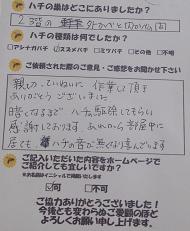 ハチの巣はどこにありましたか？
2階の 外かべと内かべの間
ハチの種類は何でしたか？
アシナガバチ スズメバチ ミツバチ その他 不明
ご依頼された際のご意見・ご感想をお聞かせ下さい
親切、ていねいに 作業して頂き
ありがとうございました
暗くなるまで ハチ駆除してもらい
感謝しております あしたから部屋中に
居ても ハチの音が無くなり喜んでます
ご記入いただいた内容をホームページで
ご紹介しても宜しいですか？
可 不可
ご協力ありがとうございました！
今後とも変わらぬご愛顧のほど
よろしくお願い申し上げます。